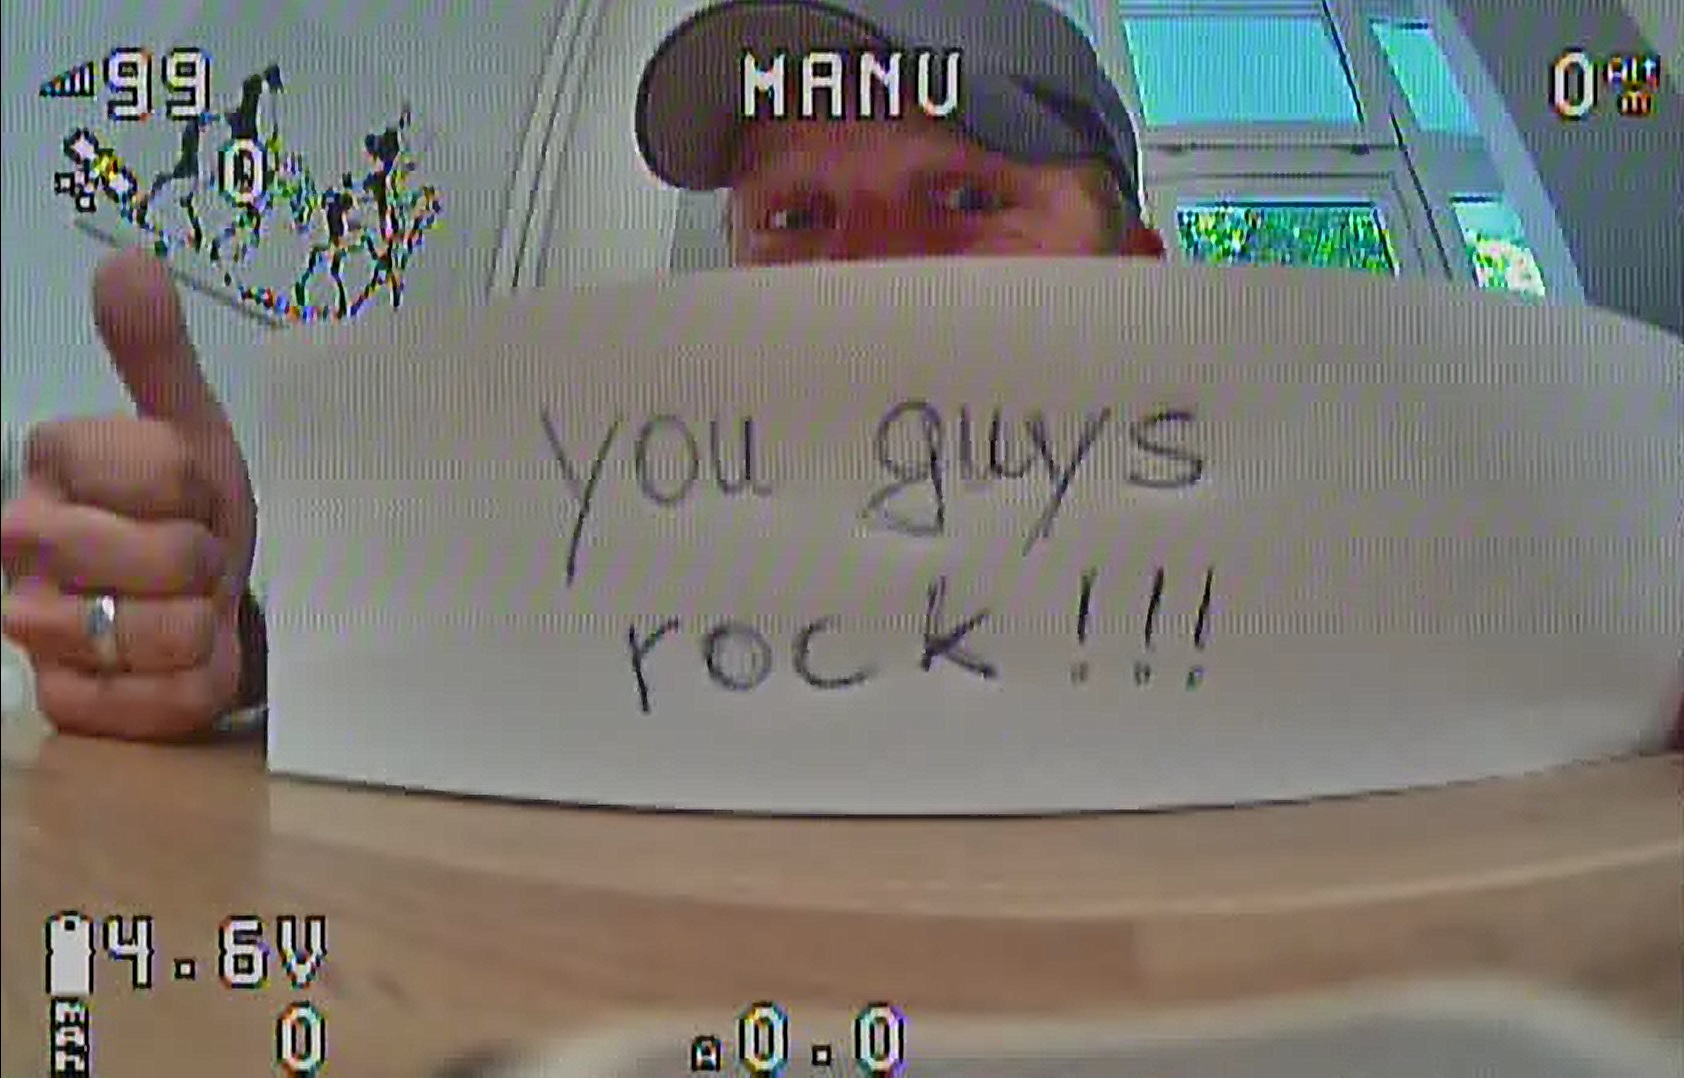 99 MANU 0 Alt m
0
you guys
rock!!!
4.6V
mAh 0 A 0.0